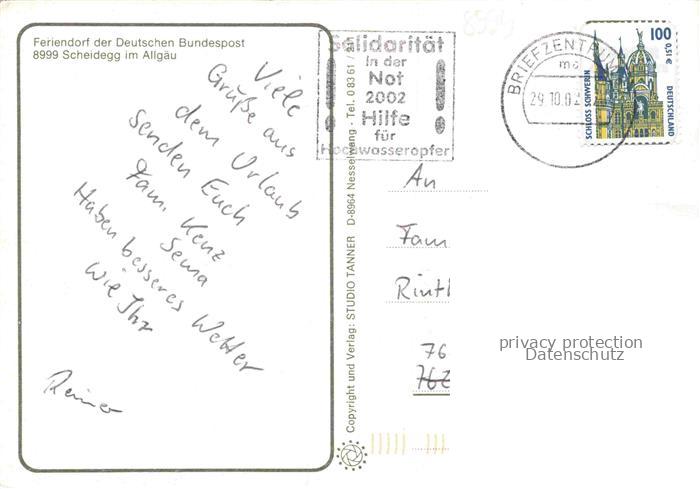 Feriendorf der Deutschen Bundespost
8999 Scheidegg im Allgäu
Viele
Grüße aus
dem Urlaub
senden Euch
Fam. Kenz
Senna
Haben besseres Wetter
wie Ihr
Reiner
Copyright und Verlag: STUDIO TANNER D-8964 Nesselwang · Tel. 0 83 61 /
Solidarität
in der
Not
2002
Hilfe
für
Hochwasseropfer
BRIEFZENTRUM
29.10.0
100
0,51 €
SCHLOSS SCHWERIN
DEUTSCHLAND
An
Fam
Rint
76
762
privacy protection
Datenschutz